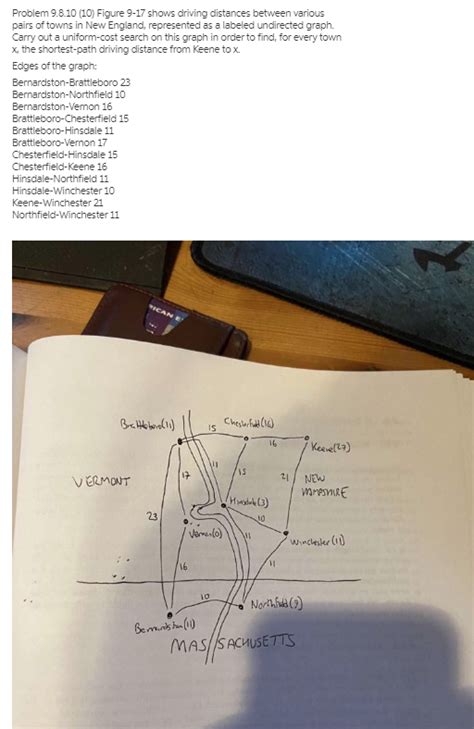 Problem 9.8.10 (10) Figure 9-17 shows driving distances between various
pairs of towns in New England, represented as a labeled undirected graph.
Carry out a uniform-cost search on this graph in order to find, for every town
x, the shortest-path driving distance from Keene to x.
Edges of the graph:
Bernardston-Brattleboro 23
Bernardston-Northfield 10
Bernardston-Vernon 16
Brattleboro-Chesterfield 15
Brattleboro-Hinsdale 11
Brattleboro-Vernon 17
Chesterfield-Hinsdale 15
Chesterfield-Keene 16
Hinsdale-Northfield 11
Hinsdale-Winchester 10
Keene-Winchester 21
Northfield-Winchester 11
Brattleboro(11)
15
Chesterfield(16)
16
Keene(27)
VERMONT
17
11
15
21
NEW
HAMPSHIRE
23
Hinsdale(3)
10
Vernon(0)
11
Winchester(11)
16
11
10
Northfield(9)
Bernardston(11)
MASSACHUSETTS